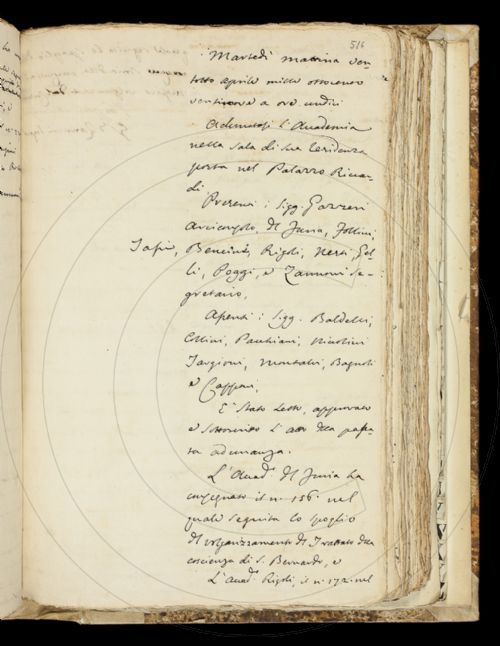 516
Martedì mattina ven-
totto aprile mille ottocento
ventinove a ore undici
Adunatasi l'Accademia
nella sala di sua residenza
posta nel Palazzo Riccar-
di.
Presenti: Sigg. Gazzeri
Arciconsolo, Del Furia, Follini,
Tassi, Bencini, Rigoli, Nesti, Gel-
li, Poggi, e Zannoni Se-
gretario.
Assenti: Sigg. Baldelli,
Collini, Pacchiani, Niccolini
Targioni, Montalvi, Bagnoli
e Capponi.
È stato letto, approvato
e sottoscritto l'atto della passa-
ta adunanza.
L'Accad.o Del Furia ha
consegnato il n. 156. nel
quale seguita lo spoglio
del volgarizzamento del Trattato della
coscienza di S. Bernardo, e
L'Accad.o Rigoli, il n. 172. nel